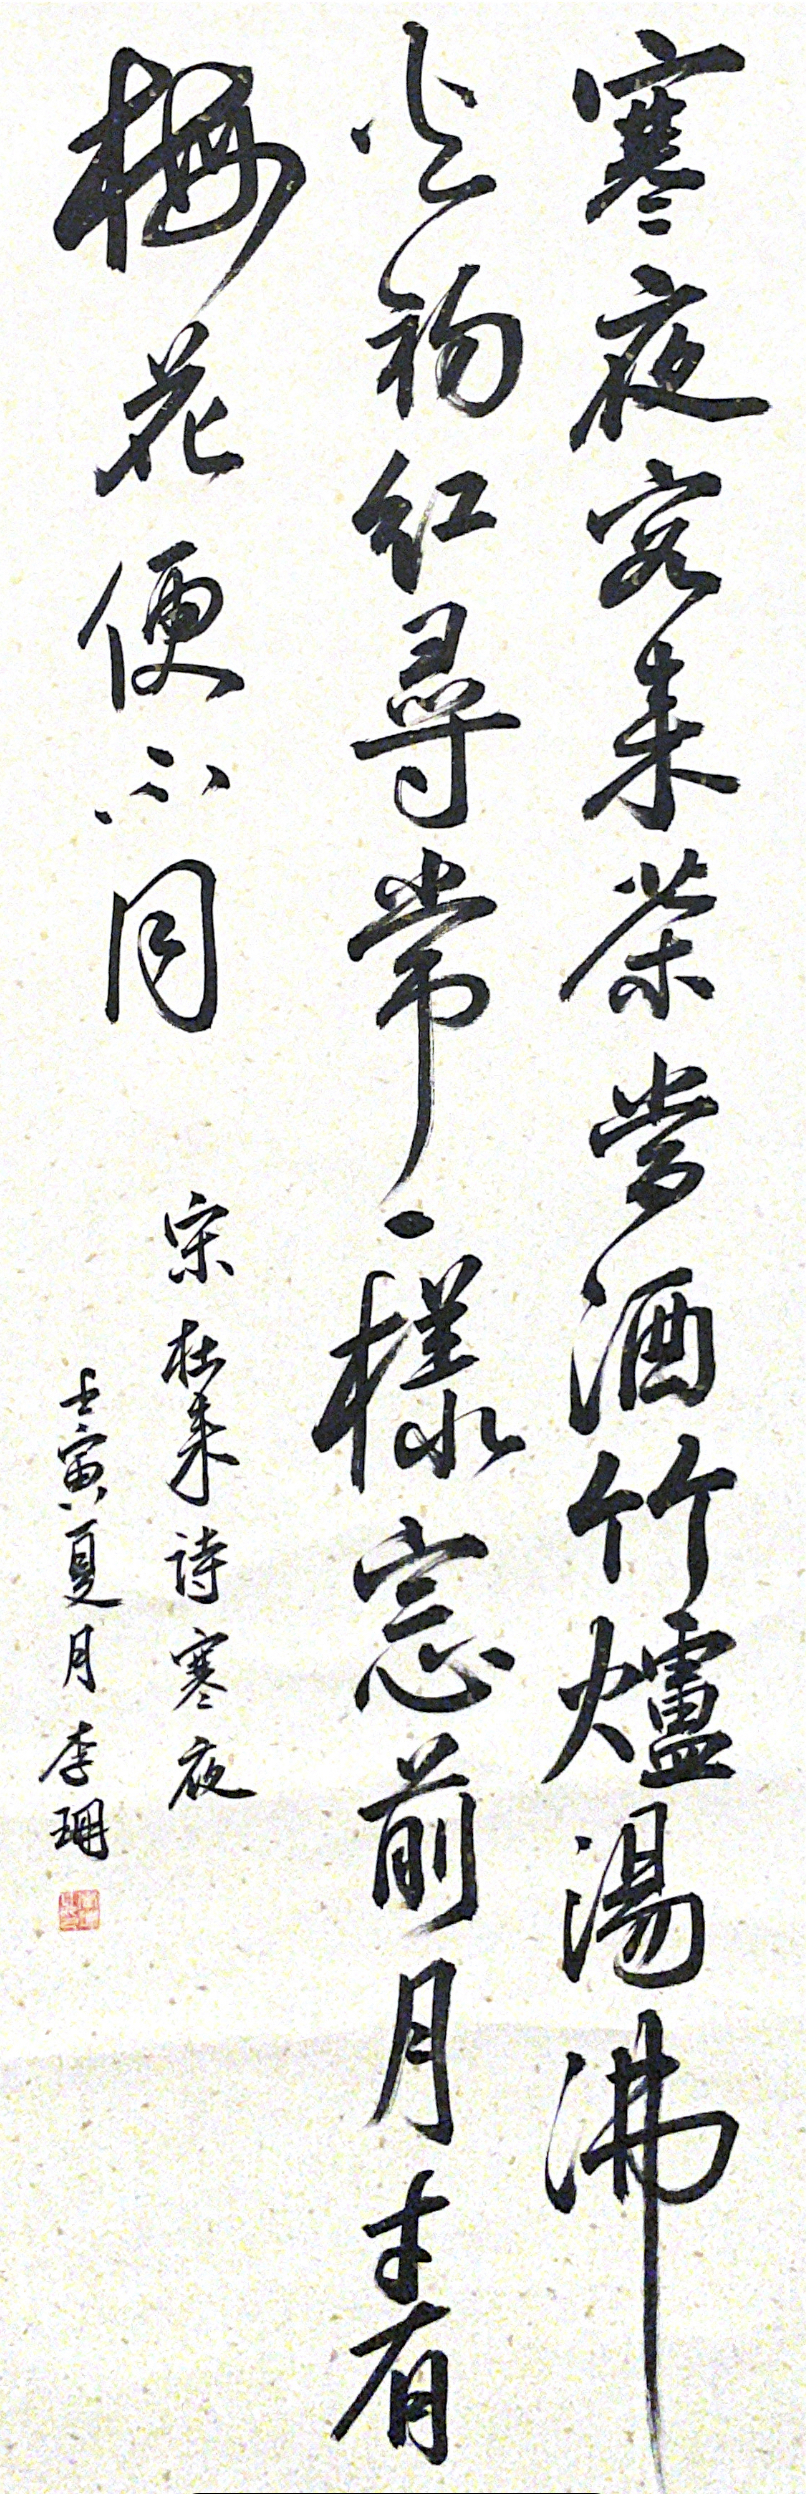 寒夜客来茶當酒竹爐湯沸
火初红尋常一樣窓前月才有
梅花便不同
宋杜耒詩寒夜
壬寅夏月李珊